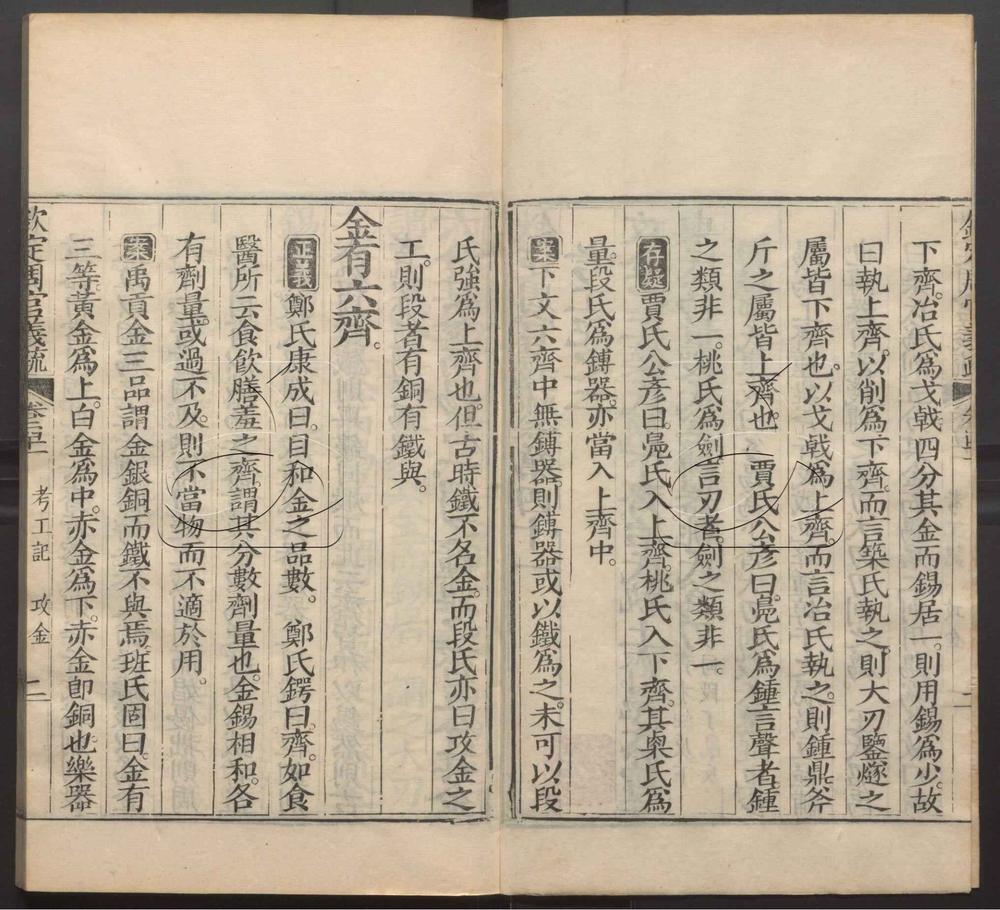 下齊冶氏爲戈戟四分其金而錫居一則用錫爲少故
曰執上齊以削爲下齊而言築氏執之則大刃鑒燧之
屬皆下齊也以戈戟爲上齊而言冶氏執之則鍾鼎斧
斤之屬皆上齊也 賈氏公彥曰鳧氏爲鍾言聲者鍾
之類非一桃氏爲劍言刃者劍之類非一
存疑賈氏公彥曰鳧氏入上齊桃氏入下齊其㮚氏爲
量段氏爲鎛器亦當入上齊中
案下文六齊中無鎛器則鎛器或以鐵爲之未可以段
氏強爲上齊也但古時鐵不名金而段氏亦曰攻金之
工則段者有銅有鐵與
金有六齊
正義鄭氏康成曰目和金之品數 鄭氏鍔曰齊如食
醫所云食飲膳羞之齊謂其分數劑量也金錫相和各
有劑量或過不及則不當物而不適於用
案禹貢金三品謂金銀銅而鐵不與焉班氏固曰金有
三等黃金爲上白金爲中赤金爲下赤金卽銅也樂器
欽定周官義疏 考工記 攻金 二